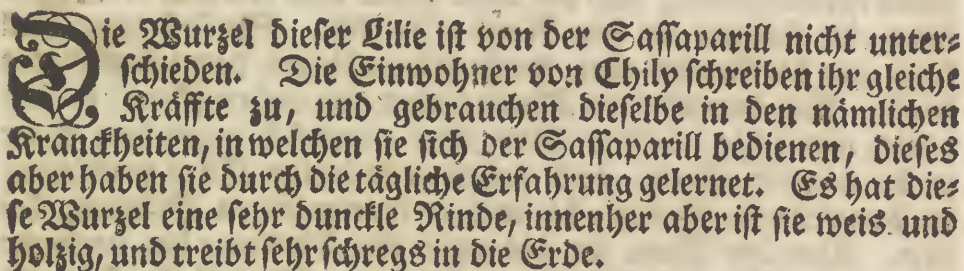 Die Wurzel dieser Lilie ist von der Sassaparill nicht unter⸗
schieden. Die Einwohner von Chily schreiben ihr gleiche
Kräffte zu, und gebrauchen dieselbe in den nämlichen
Kranckheiten, in welchen sie sich der Sassaparill bedienen, dieses
aber haben sie durch die tägliche Erfahrung gelernet. Es hat die⸗
se Wurzel eine sehr dunckle Rinde, innenher aber ist sie weis und
holzig, und treibt sehr schregs in die Erde.